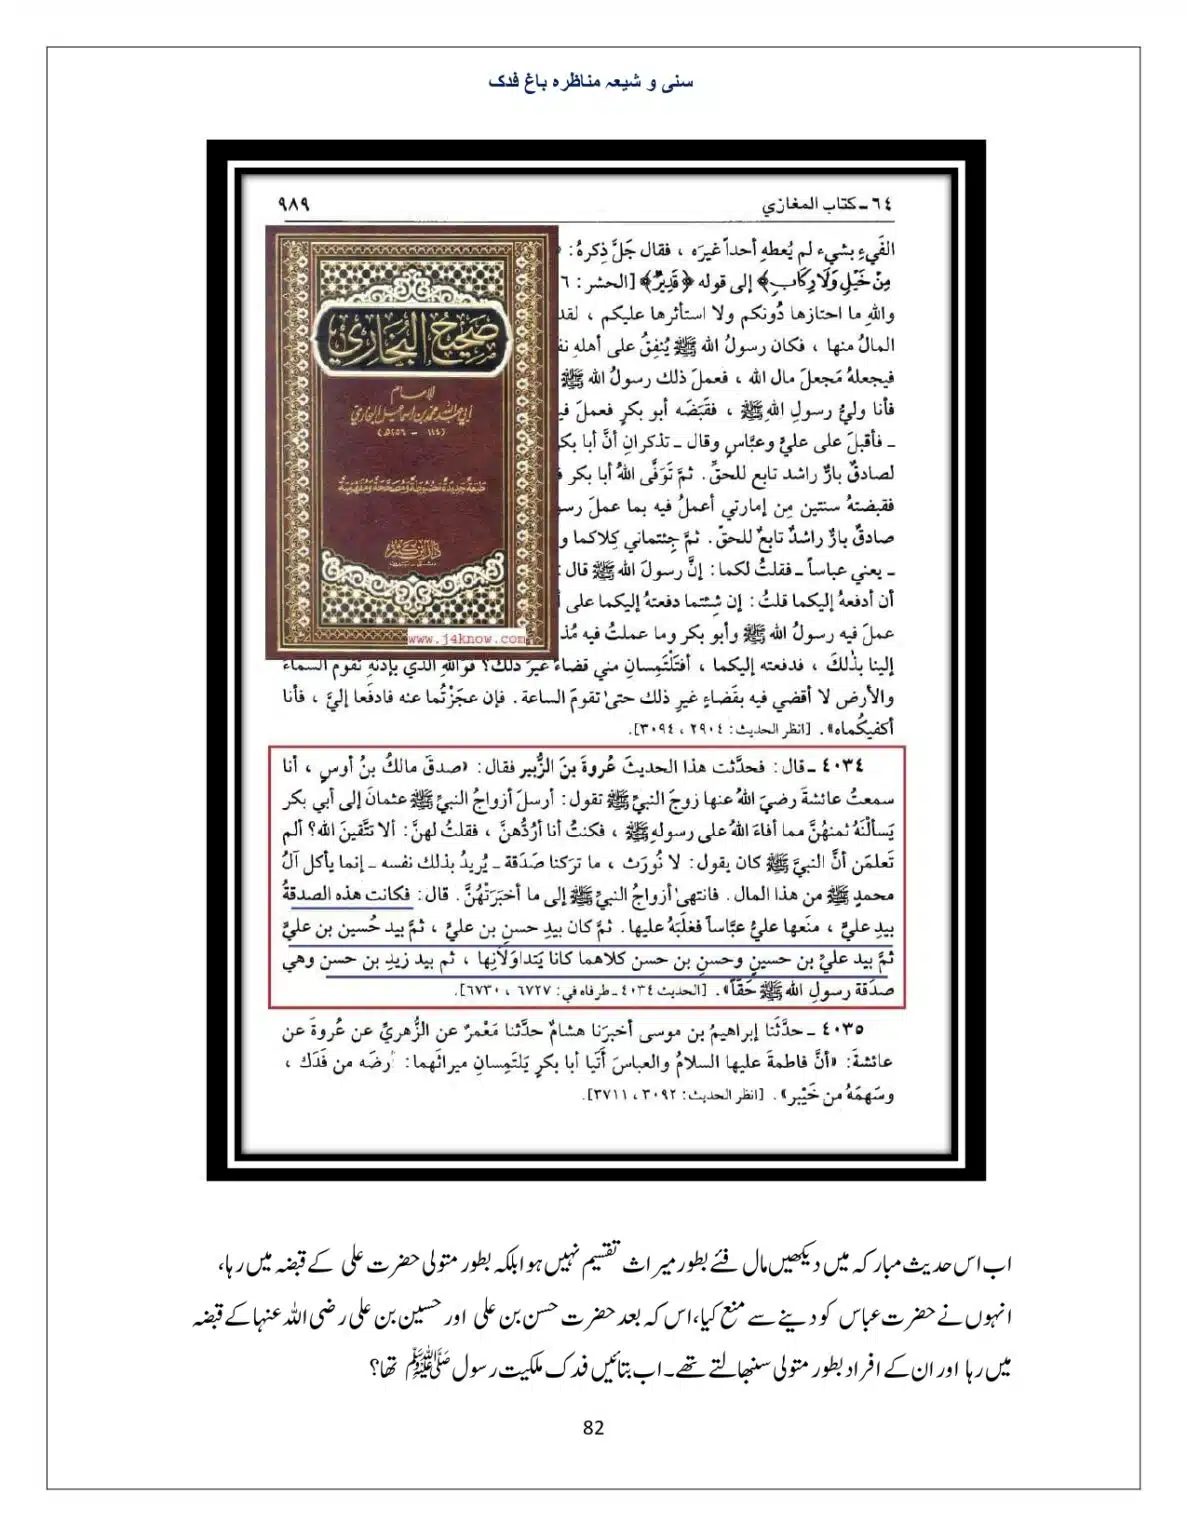 سنی و شیعہ مناظرہ باغ فدک
٦٤ ـ كتاب المغازي
٩٨٩
الفَيءِ بشيء لم يُعطهِ أحداً غيرَه ، فقال جَلَّ ذِكرهُ :
مِنْ خَيْلٍ وَلَا رِكَابٍ﴾ إلى قوله ﴿قَدِيرٌ﴾ [الحشر : ٦
واللهِ ما احتازها دُونكم ولا استأثرها عليكم ، لقد
المالُ منها ، فكان رسولُ الله ﷺ يُنفِقُ على أهلهِ نف
فيجعلهُ مَجعلَ مال الله ، فعملَ ذلك رسولُ الله ﷺ
فأنا وليُّ رسولِ اللهِ ﷺ ، فقَبَضَه أبو بكرٍ فعملَ في
ـ فأقبلَ على عليٍّ وعبَّاسٍ وقال ـ تذكرانِ أنَّ أبا بكر
لصادقٌ بارٌّ راشد تابع للحقِّ . ثمَّ تَوَفَّى اللهُ أبا بكر ف
فقبضتهُ سنتين مِن إمارتي أعملُ فيه بما عملَ رسو
صادقٌ بارٌّ راشدٌ تابعٌ للحقّ . ثمَّ جِئتماني كِلاكما و
ـ يعني عباساً ـ فقلتُ لكما : إنَّ رسولَ الله ﷺ قال :
أن أدفعهُ إليكما قلتُ : إن شِئتما دفعتهُ إليكما على أ
عملَ فيه رسولُ الله ﷺ وأبو بكر وما عملتُ فيه مُذ
إلينا بذٰلكَ ، فدفعته إليكما ، أفتَلْتَمِسانِ مني قضاءً غيرَ ذلك؟ فوَاللهِ الذي بإذنهِ تقومُ السماءُ
والأرض لا أقضي فيه بقَضاءٍ غيرِ ذلك حتىٰ تقومَ الساعة . فإن عجَزْتُما عنه فادفَعا إليَّ ، فأنا
أكفيكُماه» . [انظر الحديث : ٢٩٠٤ ، ٣٠٩٤].
٤٠٣٤ ـ قال : فحدَّثت هذا الحديثَ عُروةَ بنَ الزُّبير فقال : «صدقَ مالكُ بنُ أوسٍ ، أنا
سمعتُ عائشةَ رضيَ اللهُ عنها زوجَ النبيِّ ﷺ تقول : أرسلَ أزواجُ النبيِّ ﷺ عثمانَ إلى أبي بكر
يَسألْنَهُ ثمنهُنَّ مما أفاءَ اللهُ على رسولهِ ﷺ ، فكنتُ أنا أرُدُّهنَّ ، فقلتُ لهنَّ : ألا تتَّقينَ الله؟ ألم
تَعلمَن أنَّ النبيَّ ﷺ كان يقول : لا نُورَث ، ما تركنا صَدَقة ـ يُريدُ بذلك نفسه ـ إنما يأكل آلُ
محمدٍ ﷺ من هذا المال . فانتهىٰ أزواجُ النبيِّ ﷺ إلى ما أخبَرَتْهُنَّ . قال : فكانت هذه الصدقةُ
بيدِ عليٍّ ، منَعها عليٌّ عبَّاساً فغلبَهُ عليها . ثمَّ كان بيدِ حسنِ بن عليٍّ ، ثمَّ بيد حُسين بن عليٍّ
ثمَّ بيد عليِّ بن حسينٍ وحسنِ بن حسن كلاهما كانا يَتداوَلانِها ، ثم بيد زيدِ بن حسن وهي
صدَقة رسولِ الله ﷺ حَقّاً» . [الحديث ٤٠٣٤ ـ طرفاه في : ٦٧٢٧ ، ٦٧٣٠].
٤٠٣٥ ـ حدَّثَنا إبراهيمُ بن موسى أخبرَنا هشامٌ حدَّثنا مَعْمرٌ عن الزُّهريِّ عن عُروةَ عن
عائشةَ : «أنَّ فاطمةَ عليها السلامُ والعباسَ أتَيا أبا بكرٍ يَلتَمِسانِ ميراثَهما : أرضَه من فَدَك ،
وسَهمَهُ من خَيْبر» . [انظر الحديث : ٣٠٩٢ ، ٣٧١١].
صَحِيحُ البُخَارِي
للإمام
أبي عبد الله محمد بن إسماعيل البخاري
(١٩٤ - ٢٥٦هـ)
طبعة جديدة مضبوطة ومصححة ومفهرسة
دار ابن كثير
www.j4know.com
اب اس حدیث مبارکہ میں دیکھیں مال فئے بطور میراث تقسیم نہیں ہوا بلکہ بطور متولی حضرت علی کے قبضہ میں رہا،
انہوں نے حضرت عباس کو دینے سے منع کیا، اس کہ بعد حضرت حسن بن علی اور حسین بن علی رضی اللہ عنہا کے قبضہ
میں رہا اور ان کے افراد بطور متولی سنبھالتے تھے۔ اب بتائیں فدک ملکیت رسول ﷺ تھا؟
82